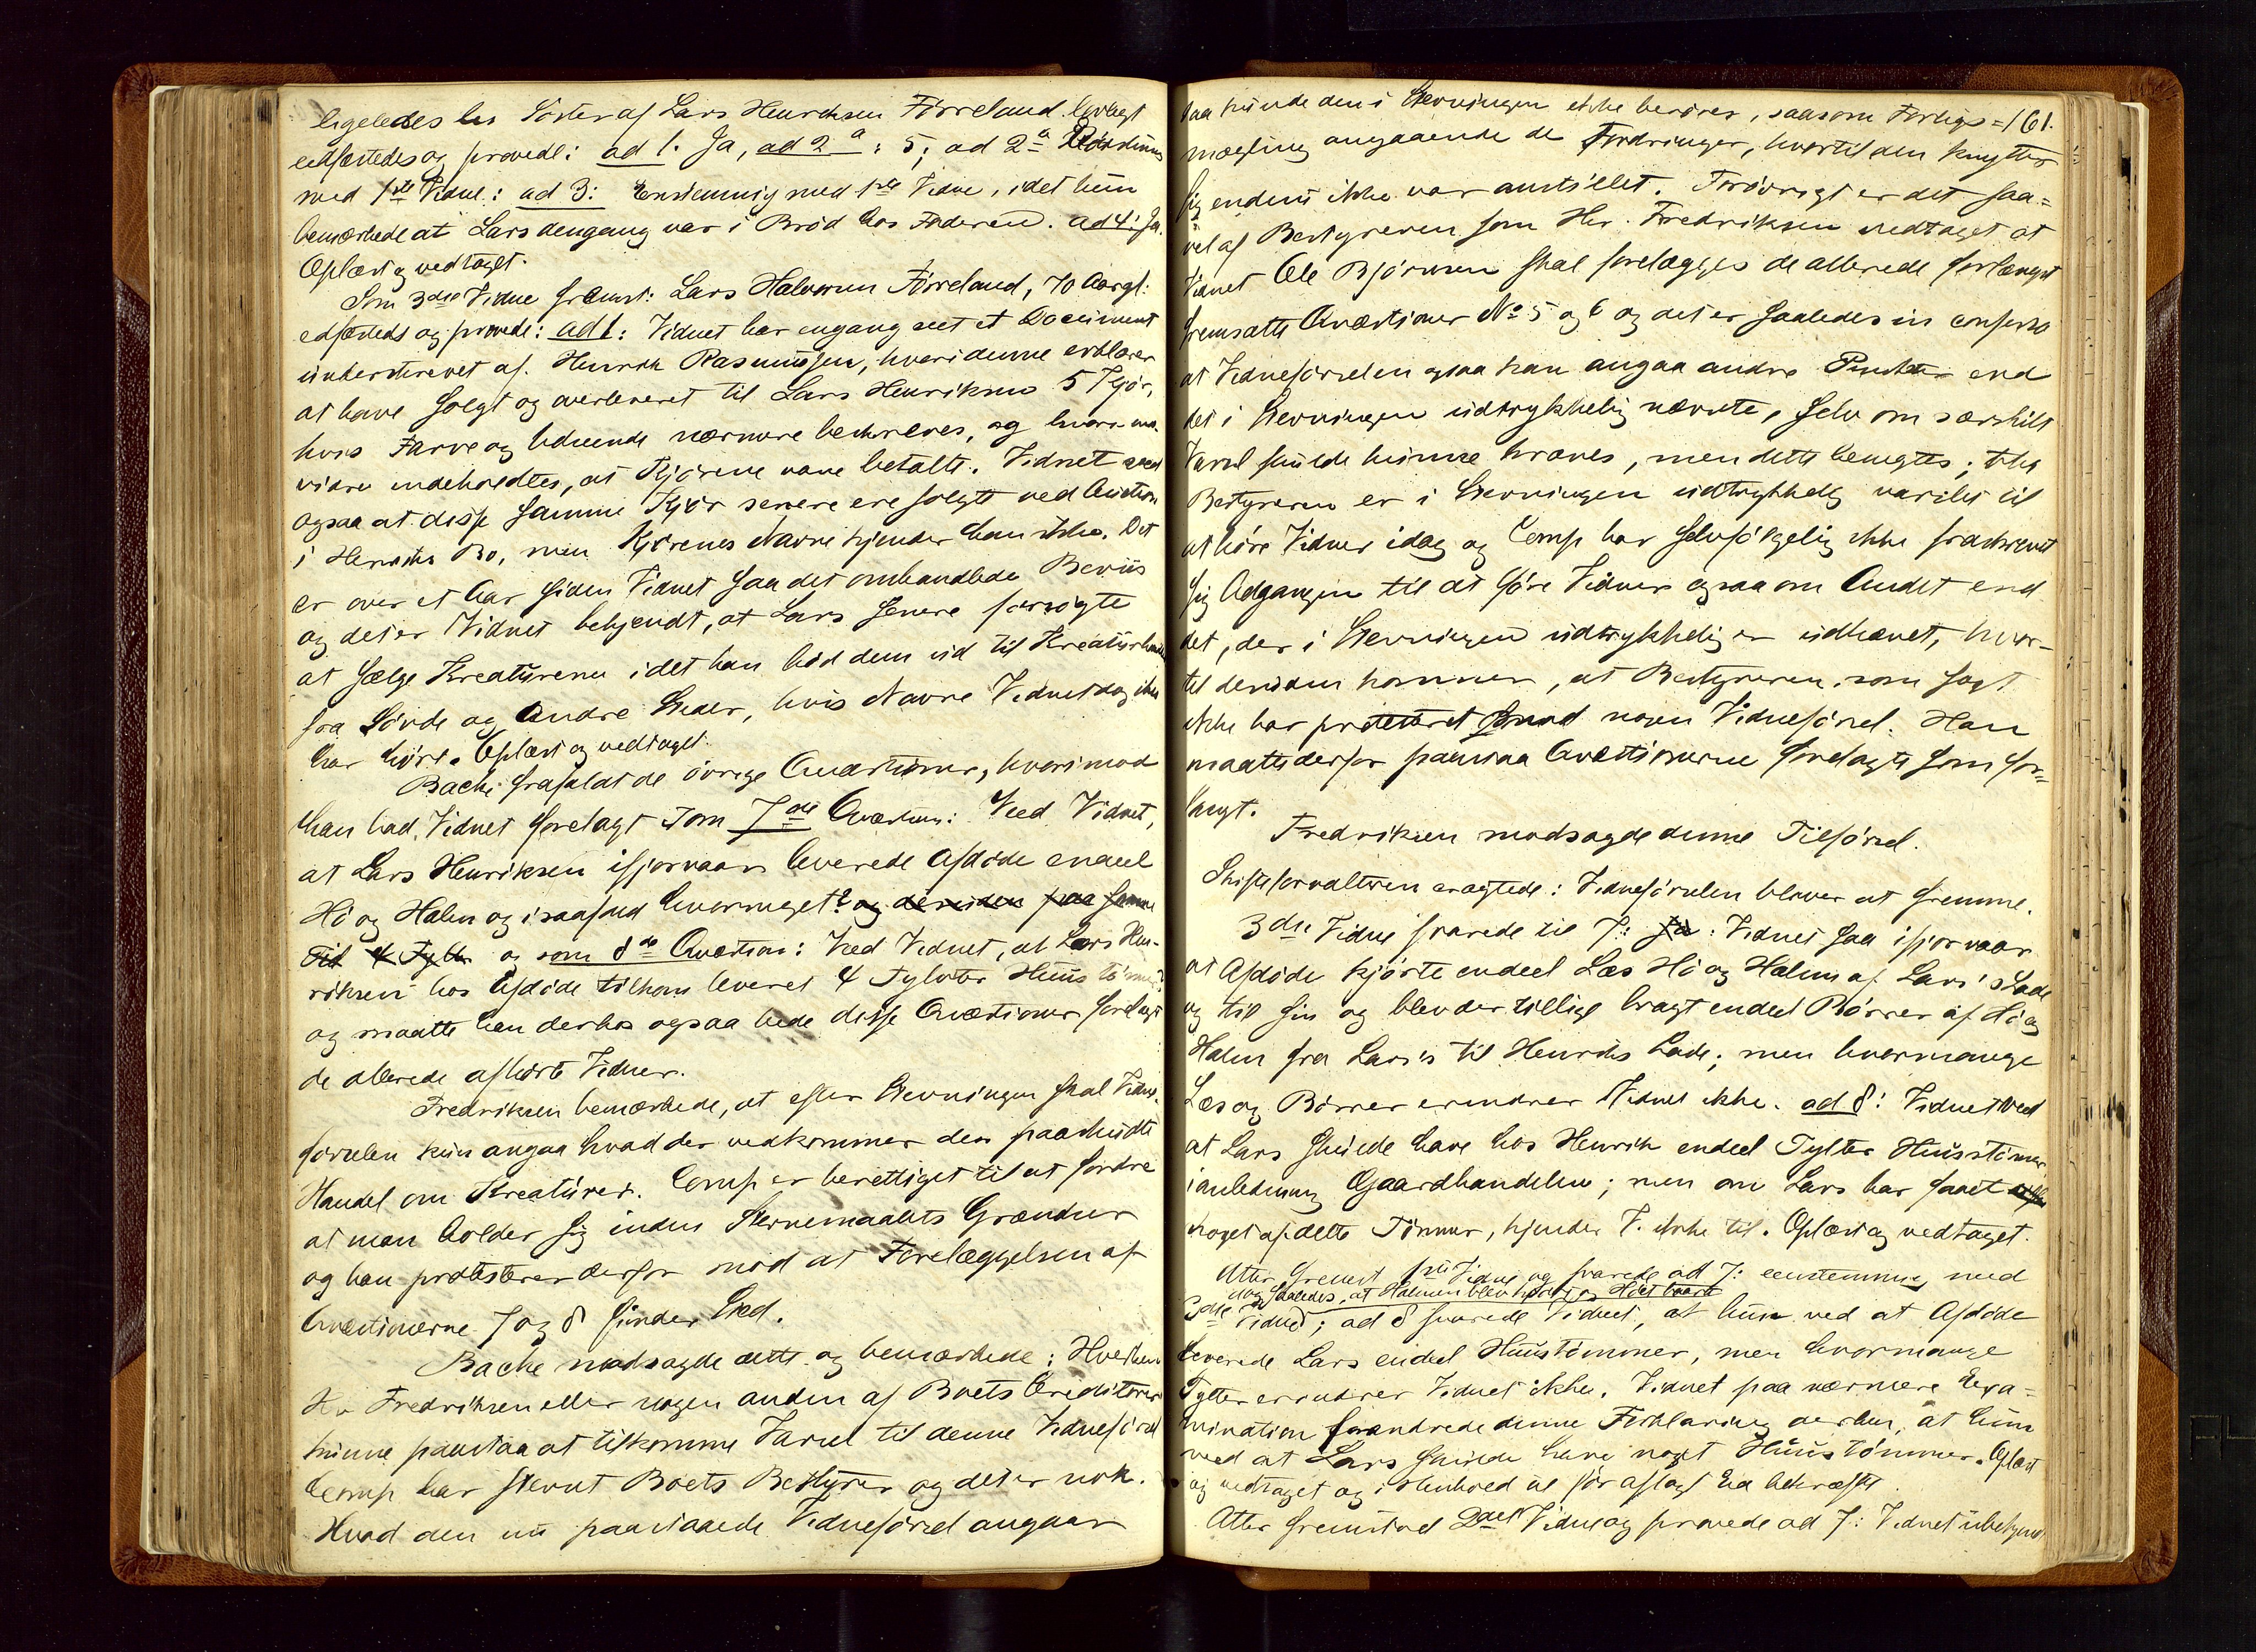 ligeledes en Søster af Lars Henriksen Førreland lovligt
edfæstedes og provede: ad 1. Ja, ad 2 a: 5; ad 2 b
med 1ste Vidne: ad 3: Enstemmig med 1ste Vidne, idet hun
bemærkede at Lars dengang var i Brød hos Faderen. ad 4: Ja.
Oplæst og vedtaget.
Som 3die Vidne fremst: Lars Halvorsen Førreland, 70 Aar gl:
edfæstedes og provede: ad 1: Vidnet har engang seet et Document
underskrevet af Henrik Rasmussen, hvori denne erklærer
at have solgt og overleveret til Lars Henriksen 5 Kjør,
hvis Farve og Udseende nærmere beskreves, og hvori
videre indeholdtes, at Kjørene vare betalte. Vidnet veed
ogsaa at disse samme Kjør senere ere solgte ved Auction
i Henriks Bo, men Kjørenes Navne kjender han ikke. Det
er over et Aar siden Vidnet saa det omhandlede Beviis
og det er Vidnet bekjendt, at Lars senere forsøgte
at sælge Kreaturene idet han bød dem ud til Kreaturhandlere
fra Søvde og Andre Steder, hvis Navne Vidnet dog ikke
har hørt. Oplæst og vedtaget.
Bache frafaldt de øvrige Qvæstioner, hvorimod
han bad Vidnet forelagt som 7de Qvæstion: Veed Vidnet,
at Lars Henriksen ifjorvaar leverede Afdøde endeel
Hø og Halm og i saafald hvormeget? og desuden paa samme
Tid 4 Tylter og som 8de Qvæstion: Veed Vidnet, at Lars Hen-
riksen hos Afdøde tilkom leveret 4 Tylvter Huustømmer?
og maatte han derhos ogsaa bede disse Qvæstioner forelagt
de allerede afhørte Vidner.
Fredriksen bemærkede, at efter Stevningen skal Vidne-
førselen kun angaa hvad der vedkommer den paaskudte
Handel om Kreaturer. Comp er berettiget til at fordre
at man holder sig inden Stevnemaalets Grændser
og han protesterer derfor mod at Forelæggelsen af
Qvæstionerne 7 og 8 finder Sted.
Bache modsagde dette og bemærkede: Hverken
Hr Fredriksen eller nogen anden af Boets Creditorer
kunne paastaa at tilkomme Varsel til denne Vidneførsel
Comp har stevnt Boets Bestyrer og det er nok.
Hvad den nu paastaaede Vidneførsel angaar
161.
saa kunde den i Stevningen ikke berøres, saasom Forligs=
mægling angaaende de Fordringer, hvortil den knytter
sig endnu ikke var anstillet. Forøvrigt er det saa=
vel af Bestyreren som Hr. Fredriksen vedtaget at
Vidnet Ole Bjørnsen skal forelægges de allerede forlængst
fremsatte Qvæstioner No 5 og 6 og det er saaledes in confesso
at Vidneførselen ogsaa kan angaa andre Puncter end
det i Stevningen udtrykkelig nævnte, selv om særskilt
Varsel skulde kunne kræves, men dette benegtes; thi
Bestyreren er i Stevningen udtrykkelig varslet til
at høre Vidner idag og Comp har selvfølgelig ikke fraskrevet
sig Adgangen til at føre Vidner ogsaa om Andet end
det, der i Stevningen udtrykkelig er udhævet, hvor-
til desuden kommer, at Bestyreren, som sagt
ikke har protesteret mod nogen Vidneførsel. Han
maatte derfor paastaa Qvæstionerne forelagte som for=
langt.
Fredriksen modsagde denne Tilførsel.
Skifteforvalteren eragtede: Vidneførselen bliver at fremme.
3die Vidne svarede til 7: Ja: Vidnet saa ifjorvaar
at Afdøde kjørte endeel Læs Hø og Halm af Lars's Lade
og til sin og blev der tillige bragt endeel Børrer af Hø og
Halm fra Lars's til Henriks Lade; men hvormange
Læs og Børrer erindrer Vidnet ikke. ad 8: Vidnet veed
at Lars skulde have hos Henrik endeel Tylter Huustømmer
i anledning Gaardhandelen; men om Lars har faaet
noget af dette Tømmer, kjender V. ikke til. Oplæst og vedtaget.
Atter fremst 1ste Vidne og svarede ad 7: eenstemmig med
dog saaledes, at Halmen blev kjørt og Høet baaret
3die Vidne; ad 8 svarede Vidnet, at hun ved at Afdøde
leverede Lars endeel Huustømmer, men hvormange
Tylter erindrer Vidnet ikke. Vidnet paa nærmere Exa=
mination forandrede denne Forklaring derhen, at hun
veed at Lars skulde have noget Huustømmer. Oplæst
og vedtaget og i Henhold til før aflagt Ed bekræftet.
Atter fremstod 2det Vidne og provede ad 7: Vidnet ubekjendt